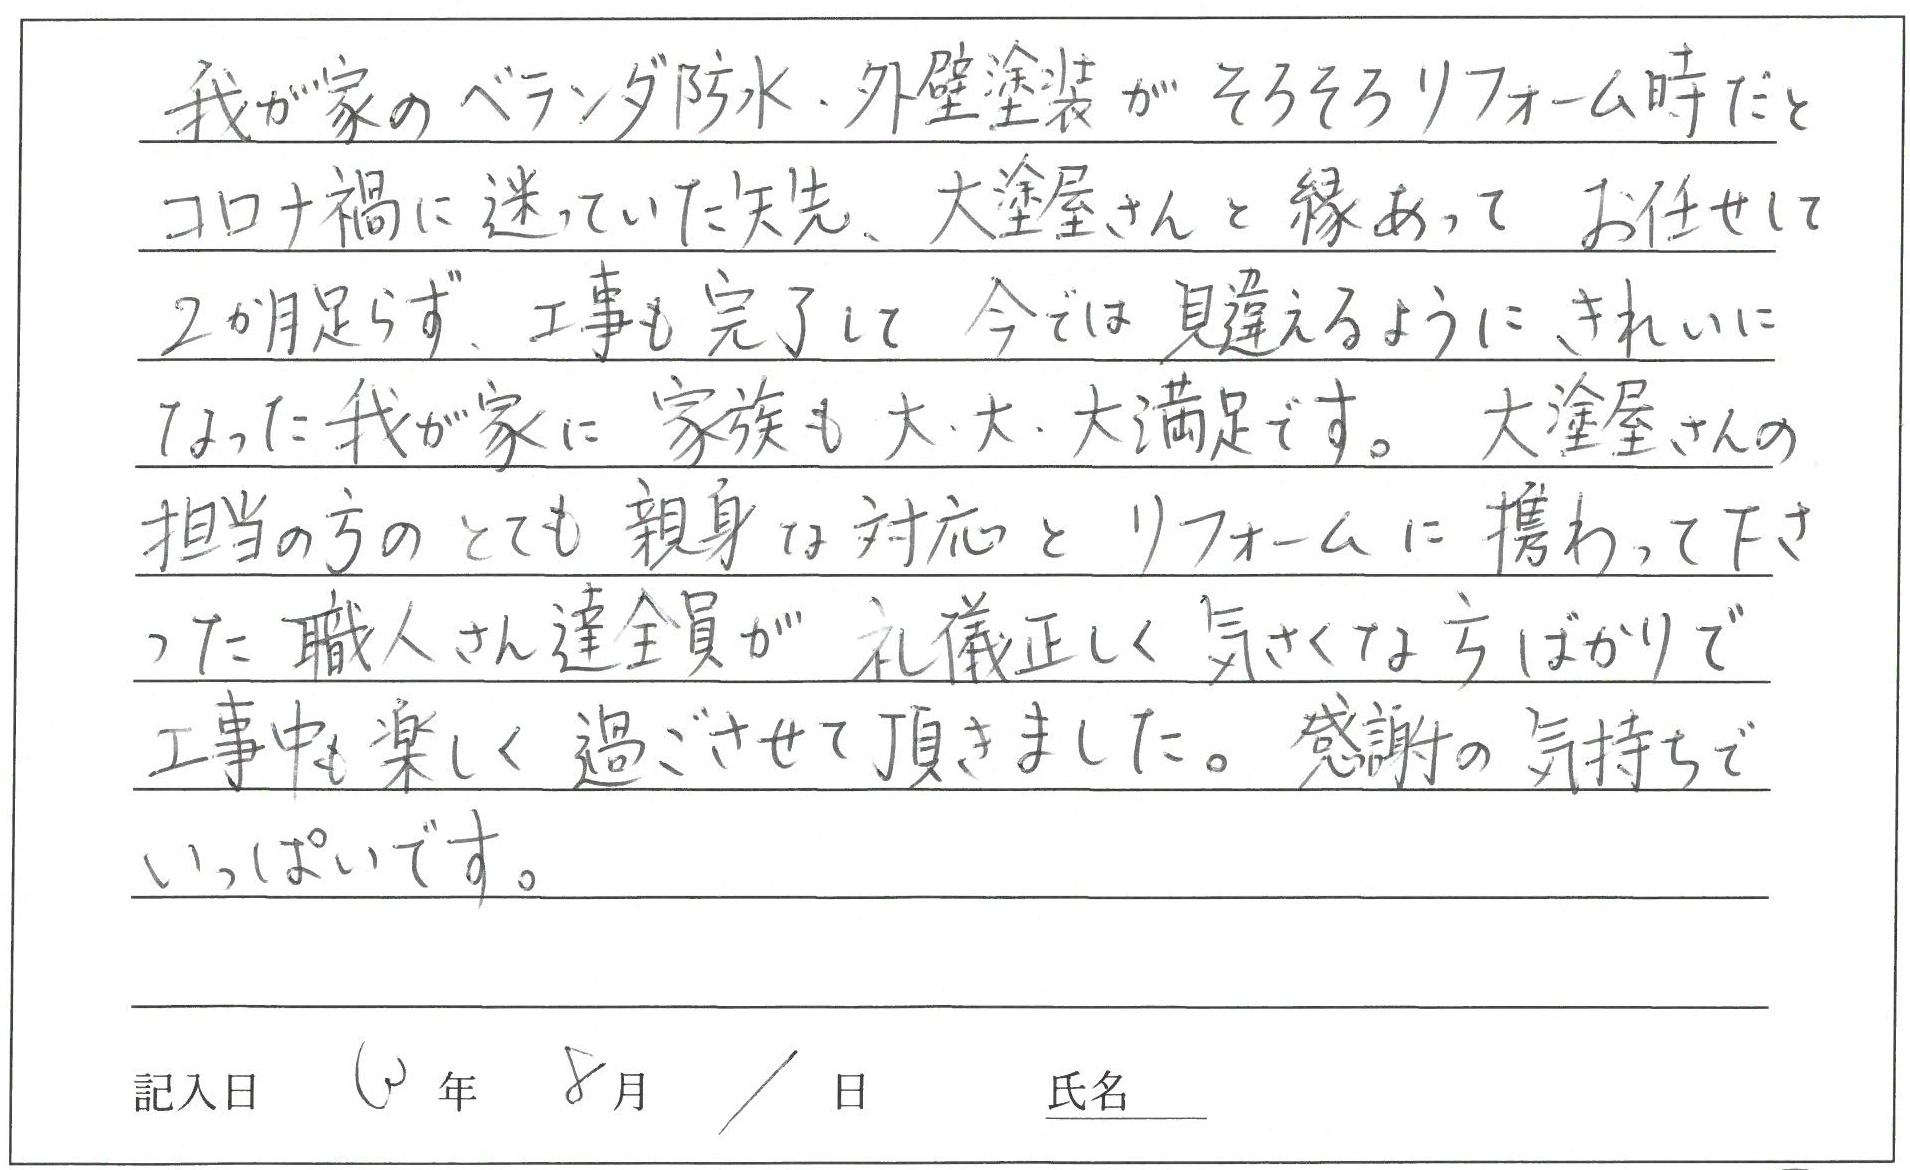 我が家のベランダ防水・外壁塗装がそろそろリフォーム時だと
コロナ禍に迷っていた矢先、大塗屋さんと縁あって お任せして
2か月足らず、工事も完了して 今では見違えるようにきれいに
なった我が家に 家族も大・大・大満足です。 大塗屋さんの
担当の方のとても親身な対応とリフォームに携わって下さ
った職人さん達全員が 礼儀正しく気さくな方ばかりで
工事中も楽しく過ごさせて頂きました。感謝の気持ちで
いっぱいです。
記入日 3年 8月 / 日 氏名